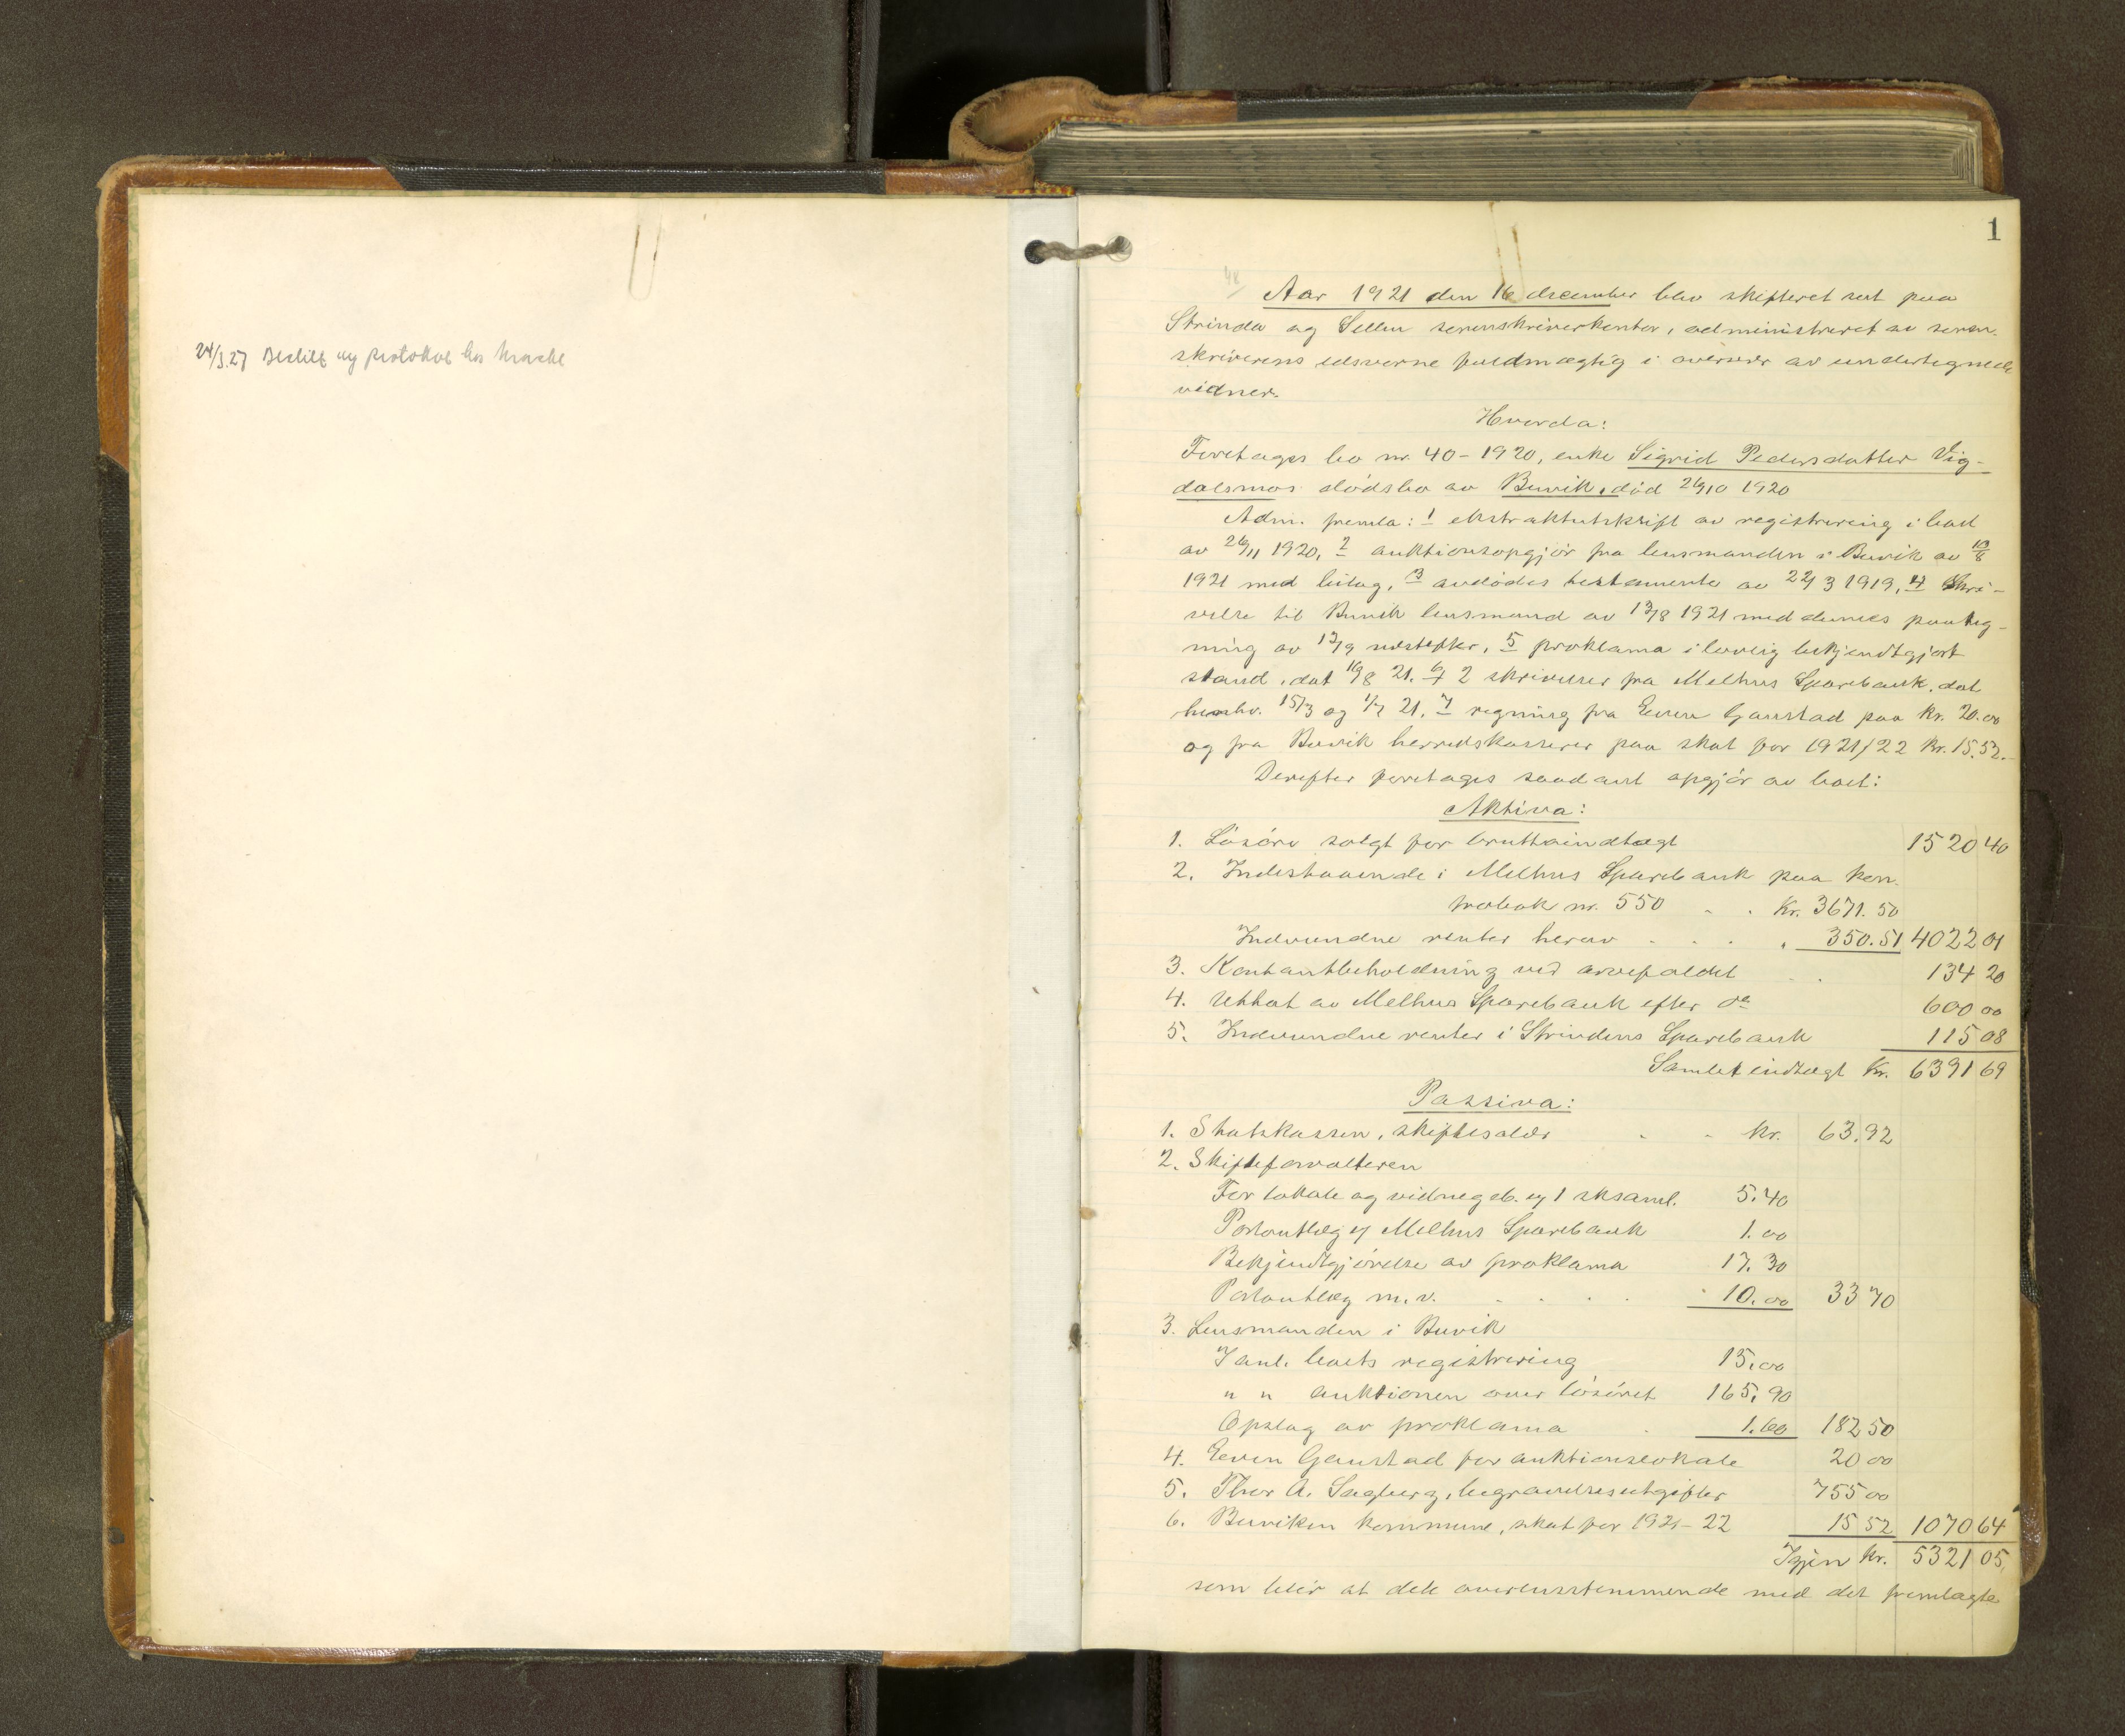 24/3.27 Bestilt ny protokol hos
1
48
Aar 1921 den 16 december blev skifteret sat paa
Strinda og Selbu sorenskriverkontor, administreret av soren-
skriverens edsvorne fuldmægtig i overvær av undertegnede
vidner.
Hvorda:
Foretages bo nr. 40 - 1920, enke Sigrid Pedersdatter Vig-
dalsmos dödsbo av Buvik, död 26/10 1920
Adm. fremla: 1 ekstraktutskrift av registrering i boet
av 26/11 1920, 2 auktionsopgjör fra lensmanden i Buvik av 10/8
1921 med bilag, 3 avdödes testamente av 22/3 1919, 4 skri-
velse til Buvik lensmand av 13/8 1921 med dennes paateg-
ning av 13/9 næstefter, 5 proklama i lovlig bekjendtgjort
stand, dat 16/8 21. 6/7 2 skrivelser fra Melhus Sparebank, dat
henhv. 15/3 og 1/7 21, 7 regning fra Even Gaustad paa kr. 20.00
og fra Buvik herredskasserer paa skat for 1921/22 kr. 15.52.-
Derefter foretages saadant opgjör av boet:
Aktiva:
1. Lösöre solgt for bruttoindtægt 1520 40
2. Indestaaende i Melhus Sparebank paa kon-
trabok nr. 550 . . Kr. 3671.50
Indvundne renter herav . . . . 350.51 4022 01
3. Kontantbeholdning ved arvefaldet . . 134 20
4. Uthævet av Melhus Sparebank efter do 600 00
5. Indvundne renter i Strindens Sparebank 115 08
Samlet indtægt Kr. 6391 69
Passiva:
1. Statskassen, skiftesalær . . kr. 63.92
2. Skifteforvalteren
For lokale og vidnegeb. vy 1 sksaml. 5.40
Portoutlæg vy Melhus Sparebank 1.00
Bekjendtgjörelse av proklama 17.30
Portoutlæg m.v. . . . . 10.00 33 70
3. Lensmanden i Buvik
I anl. boets registrering 15.00
" " auktionen over lösöret 165.90
Opslag av proklama . 1.60 182 50
4. Even Gaustad for auktionslokale 20 00
5. Thor A. Sagberg, begravelsesutgifter 755 00
6. Buviken kommune, skat for 1921-22 15 52 1070 64
Igjen kr. 5321 05,
som blir at dele overensstemmende med det fremlagte